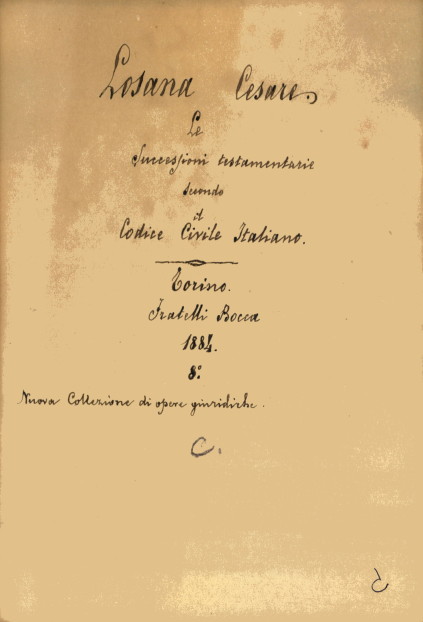 Losana Cesare.
Le
Successioni testamentarie
secondo
il
Codice Civile Italiano.
Torino.
Fratelli Bocca
1884.
8.°
Nuova Collezione di opere giuridiche.
C.